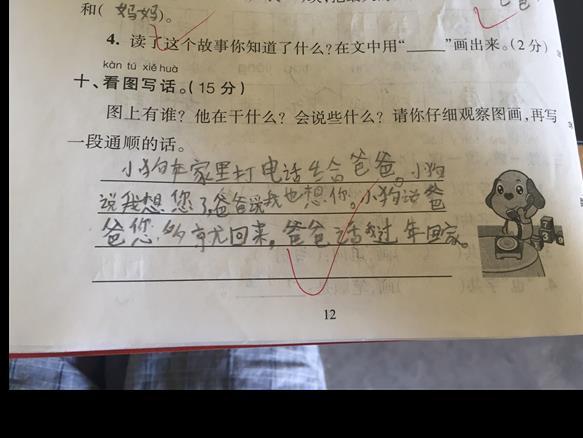 和(妈妈)。
爸
4. 读了这个故事你知道了什么？在文中用“_____”画出来。(2分)
kàn tú xiě huà
十、看图写话。(15分)
图上有谁？他在干什么？会说些什么？请你仔细观察图画，再写
一段通顺的话。
小狗在家里打电话给爸爸。小狗
说我想您了，爸爸说我也想你。小狗说爸
爸您 回来，爸爸说我过年回家。
12